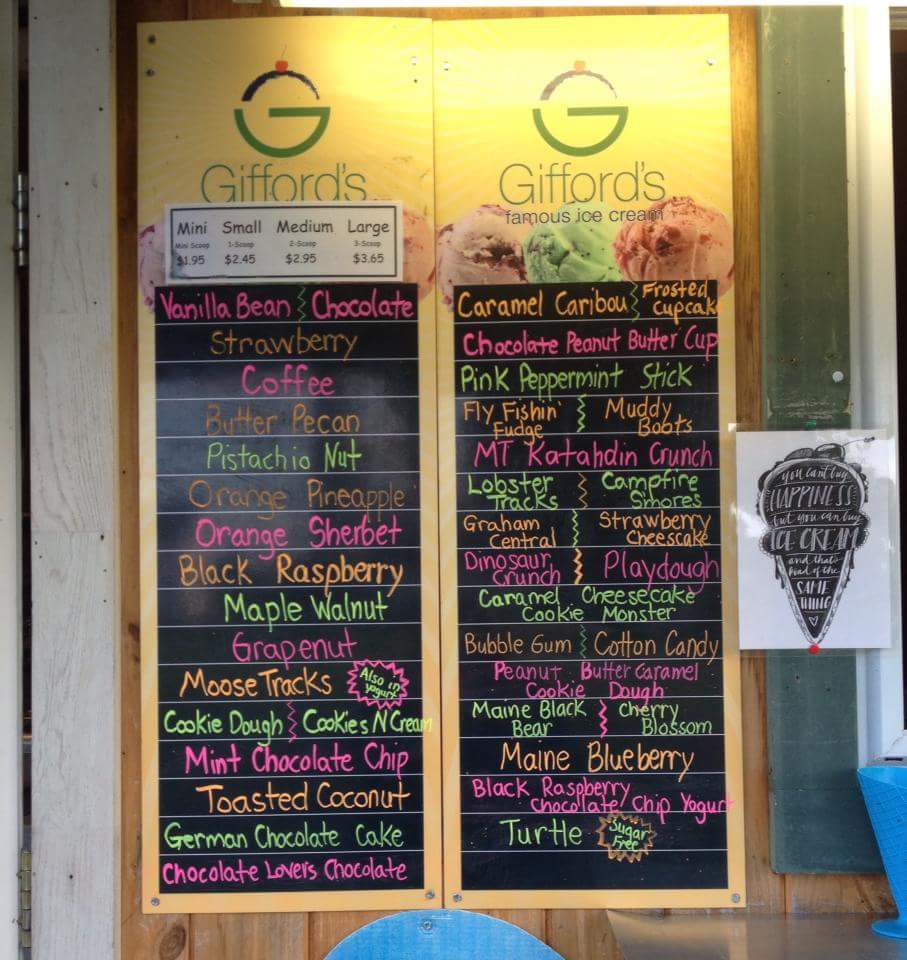 Gifford's
Mini Small Medium Large
Mini Scoop 1-Scoop 2-Scoop 3-Scoop
$1.95 $2.45 $2.95 $3.65
Vanilla Bean Chocolate
Strawberry
Coffee
Butter Pecan
Pistachio Nut
Orange Pineapple
Orange Sherbet
Black Raspberry
Maple Walnut
Grapenut
Moose Tracks
Also in
yogurt
Cookie Dough Cookies N Cream
Mint Chocolate Chip
Toasted Coconut
German Chocolate Cake
Chocolate Lovers Chocolate
Gifford's
famous ice cream
Caramel Caribou Frosted
Cupcake
Chocolate Peanut Butter Cup
Pink Peppermint Stick
Fly Fishin' Muddy
Fudge Boots
MT Katahdin Crunch
Lobster Campfire
Tracks S'mores
Graham Strawberry
Central Cheescake
Dinosaur Playdough
Crunch
Caramel Cheesecake
Cookie Monster
Bubble Gum Cotton Candy
Peanut Butter Caramel
Cookie Dough
Maine Black Cherry
Bear Blossom
Maine Blueberry
Black Raspberry
chocolate Chip Yogurt
Turtle
Sugar
Free
you can't buy
HAPPINESS
but you can buy
ICE CREAM
and that's
kind of the
SAME
THING